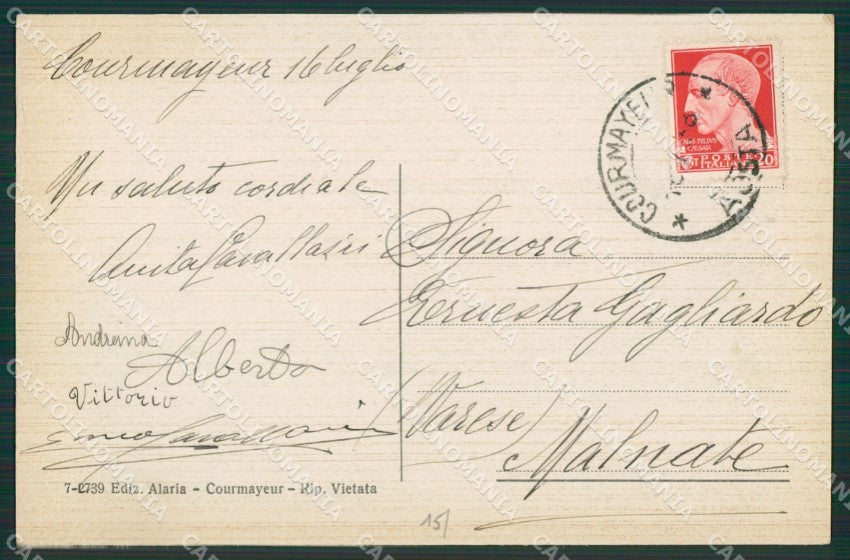 Courmayeur 16 luglio
Un saluto cordiale
Anita Cavallasi
Andreina
Alberto
Vittorio
7-2739 Ediz. Alaria - Courmayeur - Rip. Vietata
COURMAYEUR
AOSTA
CAIVS IVLIVS
CAESAR
POSTE
ITALIANE
20
Signora
Ernesta Gagliardo
(Varese)
Malnate
15/
CARTOLINOMANIA